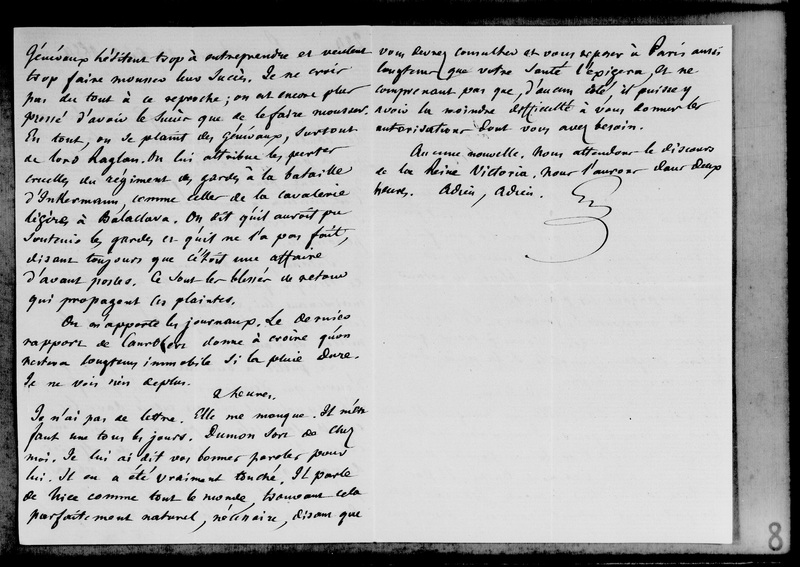 Généraux hésitent trop à entreprendre et veulent
trop faire mousser leur succès. Je ne crois
pas du tout à ce reproche ; on est encore plus
pressé d'avoir le succès que de le faire mousser.
En tout, on se plaint des Généraux, surtout
de lord Raglan. On lui attribue les pertes
cruelles du régiment des gardes à la bataille
d'Inkermann, comme celles de la cavalerie
légère à Balaclava. On dit qu'il auroit pu
soutenir les gardes et qu'il ne l'a pas fait,
disant toujours que c'étoit une affaire
d'avant postes. Ce sont les blessés de retour
qui propagent ces plaintes.
On m'apporte les journaux. Le dernier
rapport de Canrobert donne à croire qu'on
restera longtems immobile si la pluie dure.
Je ne vois rien de plus.
2 heures.
Je n'ai pas de lettre. Elle me manque. Il m'en
faut une tous les jours. Dumon sort de chez
moi. Je lui ai dit vos bonnes paroles pour
lui. Il en a été vraiment touché. Il parle
de Nice comme tout le monde, trouvant cela
parfaitement naturel, nécessaire, disant que
vous devez consulter et vous reposer à Paris aussi
longtems que votre santé l'exigera, et ne
comprenant pas que, d'aucun côté, il puisse y
avoir la moindre difficulté à vous donner les
autorisations dont vous avez besoin.
Aucune nouvelle. Nous attendons le discours
de la Reine Victoria. Nous l'aurons dans deux
heures. Adieu, Adieu.
8